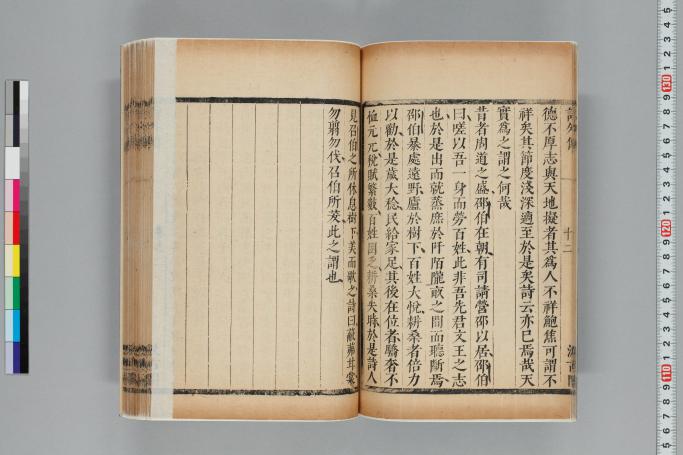 德不厚志與天地擬者其爲人不祥鮑焦可謂不
祥矣其節度淺深適至於是矣詩云亦已焉哉天
實爲之謂之何哉
昔者周道之盛邵伯在朝有司請營邵以居邵伯
曰嗟以吾一身而勞百姓此非吾先君文王之志
也於是出而就蒸庶於阡陌隴畝之間而聽斷焉
邵伯暴處遠野廬於樹下百姓大悅耕桑者倍力
以勸於是歲大稔民給家足其後在位者驕奢不
恤元元稅賦繁數百姓困乏耕桑失時於是詩人
見召伯之所休息樹下美而歌之詩曰蔽茀甘棠
勿剪勿伐召伯所茇此之謂也
十二